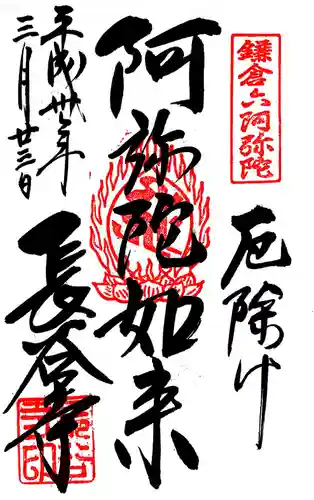 鎌倉六阿弥陀
厄除け
阿弥陀如来
平成卅年
三月廿三日
長谷寺